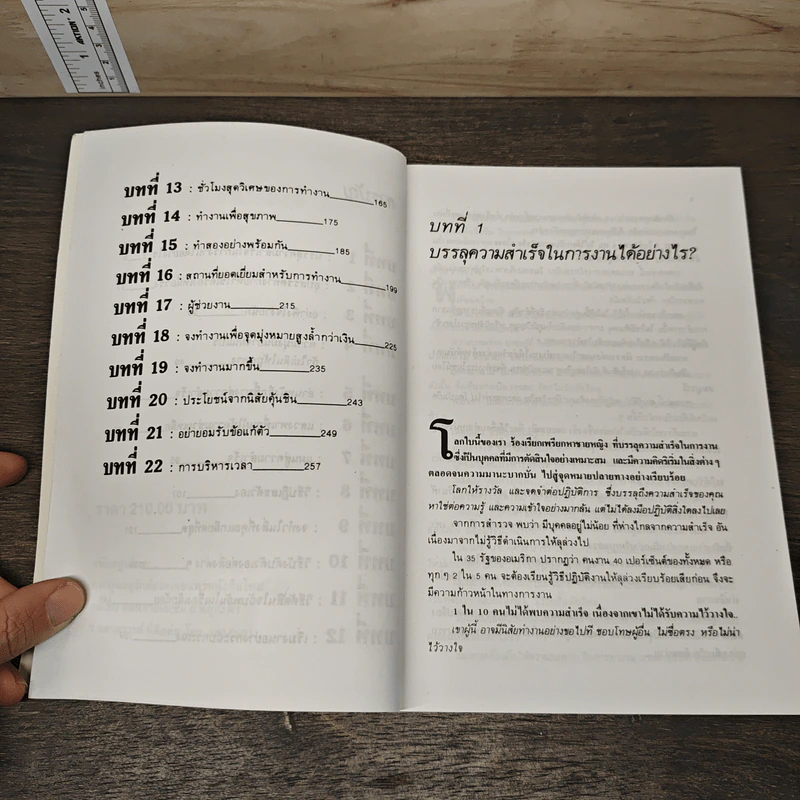 บทที่ 13 : ชั่วโมงสุดวิเศษของการทำงาน 165
บทที่ 14 : ทำงานเพื่อสุขภาพ 175
บทที่ 15 : ทำสองอย่างพร้อมกัน 185
บทที่ 16 : สถานที่ยอดเยี่ยมสำหรับการทำงาน 199
บทที่ 17 : ผู้ช่วยงาน 215
บทที่ 18 : จงทำงานเพื่อจุดมุ่งหมายสูงล้ำกว่าเงิน 225
บทที่ 19 : จงทำงานมากขึ้น 235
บทที่ 20 : ประโยชน์จากนิสัยคุ้นชิน 243
บทที่ 21 : อย่ายอมรับข้อแก้ตัว 249
บทที่ 22 : การบริหารเวลา 257
บทที่ 1
บรรลุความสำเร็จในการงานได้อย่างไร?
โลกใบนี้ของเรา ร้องเรียกเพรียกหาชายหญิง ที่บรรลุความสำเร็จในการงาน
ซึ่งเป็นบุคคลที่มีการตัดสินใจอย่างเหมาะสม และมีความคิดริเริ่มในสิ่งต่าง ๆ
ตลอดจนความมานะบากบั่น ไปสู่จุดหมายปลายทางอย่างเรียบร้อย
โลกให้รางวัล และจดจำต่อปฏิบัติการ ซึ่งบรรลุถึงความสำเร็จของคุณ
หาใช่ต่อความรู้ และความเข้าใจอย่างมากล้น แต่ไม่ได้ลงมือปฏิบัติสิ่งใดลงไปเลย
จากการสำรวจ พบว่า มีบุคคลอยู่ไม่น้อย ที่ห่างไกลจากความสำเร็จ อัน
เนื่องมาจากไม่รู้วิธีดำเนินการให้ลุล่วงไป
ใน 35 รัฐของอเมริกา ปรากฏว่า คนงาน 40 เปอร์เซ็นต์ของทั้งหมด หรือ
ทุก ๆ 2 ใน 5 คน จะต้องเรียนรู้วิธีปฏิบัติงานให้ลุล่วงเรียบร้อยเสียก่อน จึงจะ
มีความก้าวหน้าในทางการงาน
1 ใน 10 คนไม่ได้พบความสำเร็จ เนื่องจากเขาไม่ได้รับความไว้วางใจ..
เขาผู้นี้ อาจมีนิสัยทำงานอย่างขอไปที ชอบโทษผู้อื่น ไม่ซื่อตรง หรือไม่น่า
ไว้วางใจ